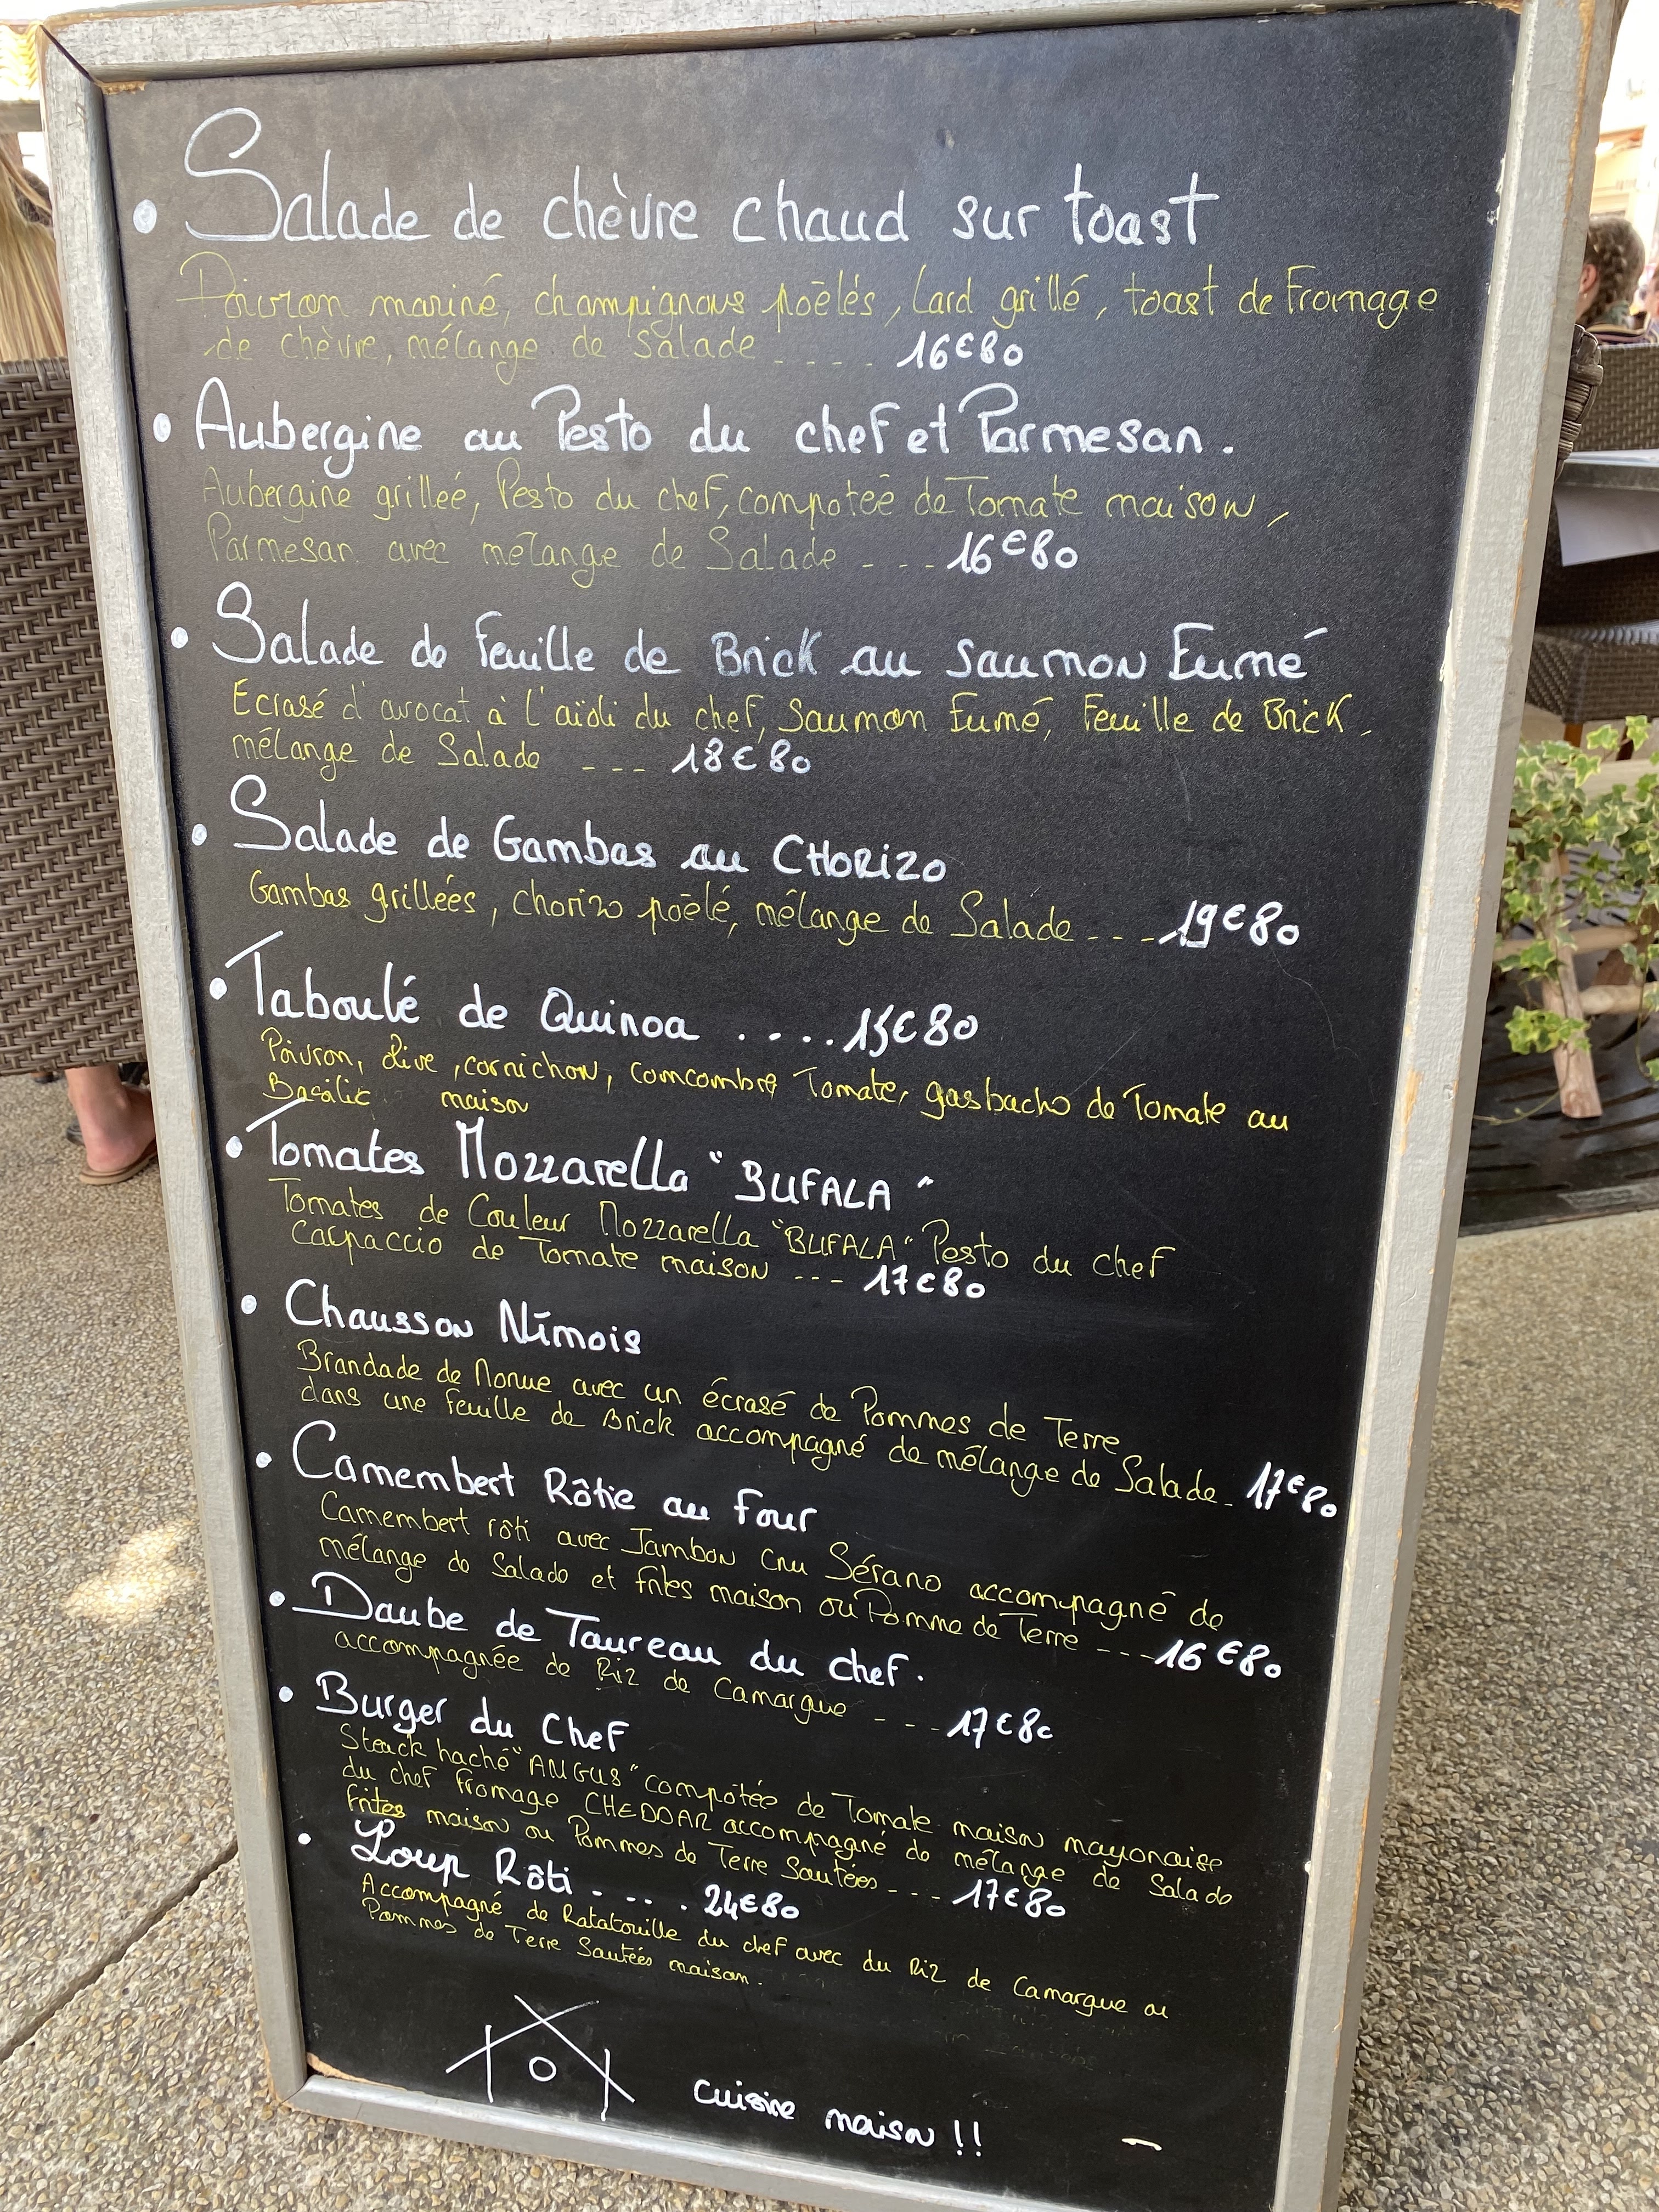 • Salade de chèvre chaud sur toast
Poivron mariné, champignons poëlés, Lard grillé, toast de Fromage
de chèvre, mélange de Salade .... 16€80
• Aubergine au Pesto du chef et Parmesan.
Aubergine grilleé, Pesto du chef, compoteé de Tomate maison,
Parmesan avec mélange de Salade --- 16€80
• Salade de Feuille de Brick au Saumon Fumé
Ecrasé d'avocat à l'aïoli du chef, Saumon Fumé, Feuille de Brick,
mélange de Salade --- 18€80
• Salade de Gambas au CHORIZO
Gambas grillées, chorizo poëlé, mélange de Salade --- 19€80
• Taboulé de Quinoa ....15€80
Poivron, Olive, cornichon, comcombre Tomate, gasbacho de Tomate au
Basilic maison
• Tomates Mozzarella "BUFALA"
Tomates de Couleur Mozzarella "BUFALA" Pesto du chef
Carpaccio de Tomate maison --- 17€80
• Chausson Nîmois
Brandade de Morue avec un écrasé de Pommes de Terre
dans une Feuille de Brick accompagné de mélange de Salade - 17€80
• Camembert Rôtie au Four
Camembert rôti avec Jambon Cru Sérano accompagné de
mélange de Salade et frites maison ou Pomme de Terre --- 16€80
• Daube de Taureau du chef.
accompagnée de Riz de Camargue --- 17€80
• Burger du Chef
Steack haché "ANGUS" compôtée de Tomate maison mayonaise
du chef fromage CHEDDAR accompagné de mélange de Salade
frites maison ou Pommes de Terre Sautées --- 17€80
• Loup Rôti .... 24€80
Accompagné de Ratatouille du chef avec du Riz de Camargue ou
Pommes de Terre Sautées maison.
cuisine maison !!